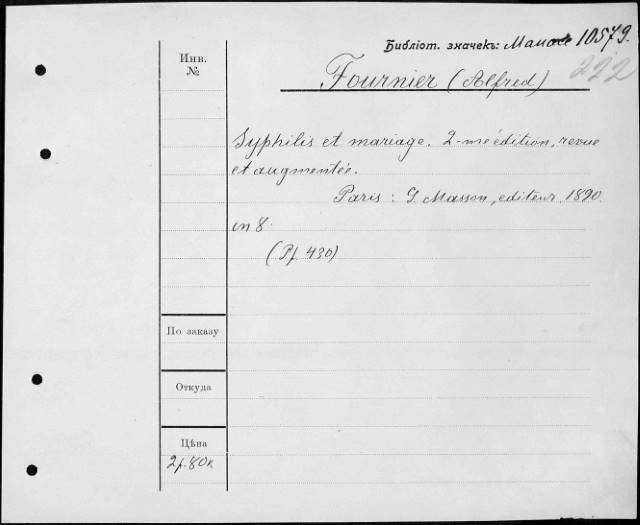 Библіот. значекъ: Малое 10579.
Инв. №
Fournier (Alfred)
222
Syphilis et mariage. 2-me édition, revue
et augmentée.
Paris : G. Masson, editeur. 1890.
in 8.
(Pf. 430)
По заказу
Откуда
Цѣна
2 р. 80 к